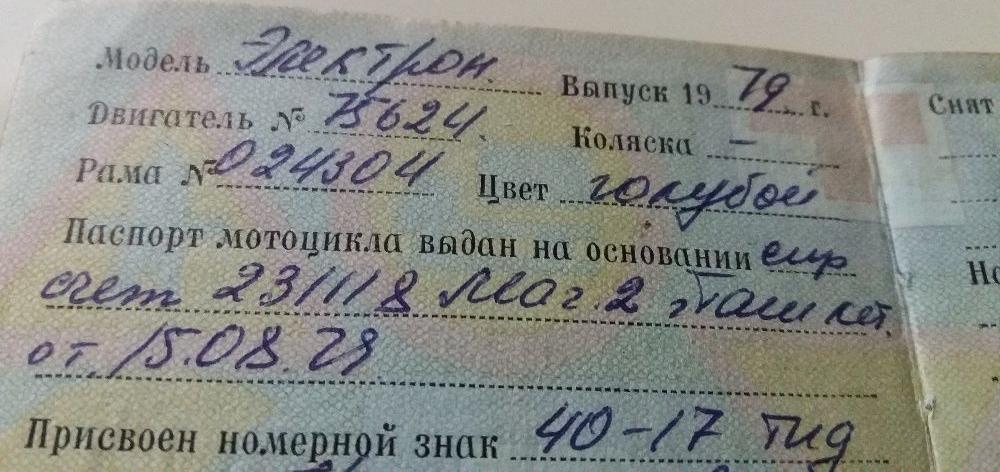 Модель Электрон. Выпуск 19 79 г.
Двигатель № 75624. Коляска —
Рама № 024304 Цвет голубой
Паспорт мотоцикла выдан на основании
счет 231118 Маг. 2 Ташкет,
от. 15.08.79
Присвоен номерной знак 40-17 ТИД
Снят
Но